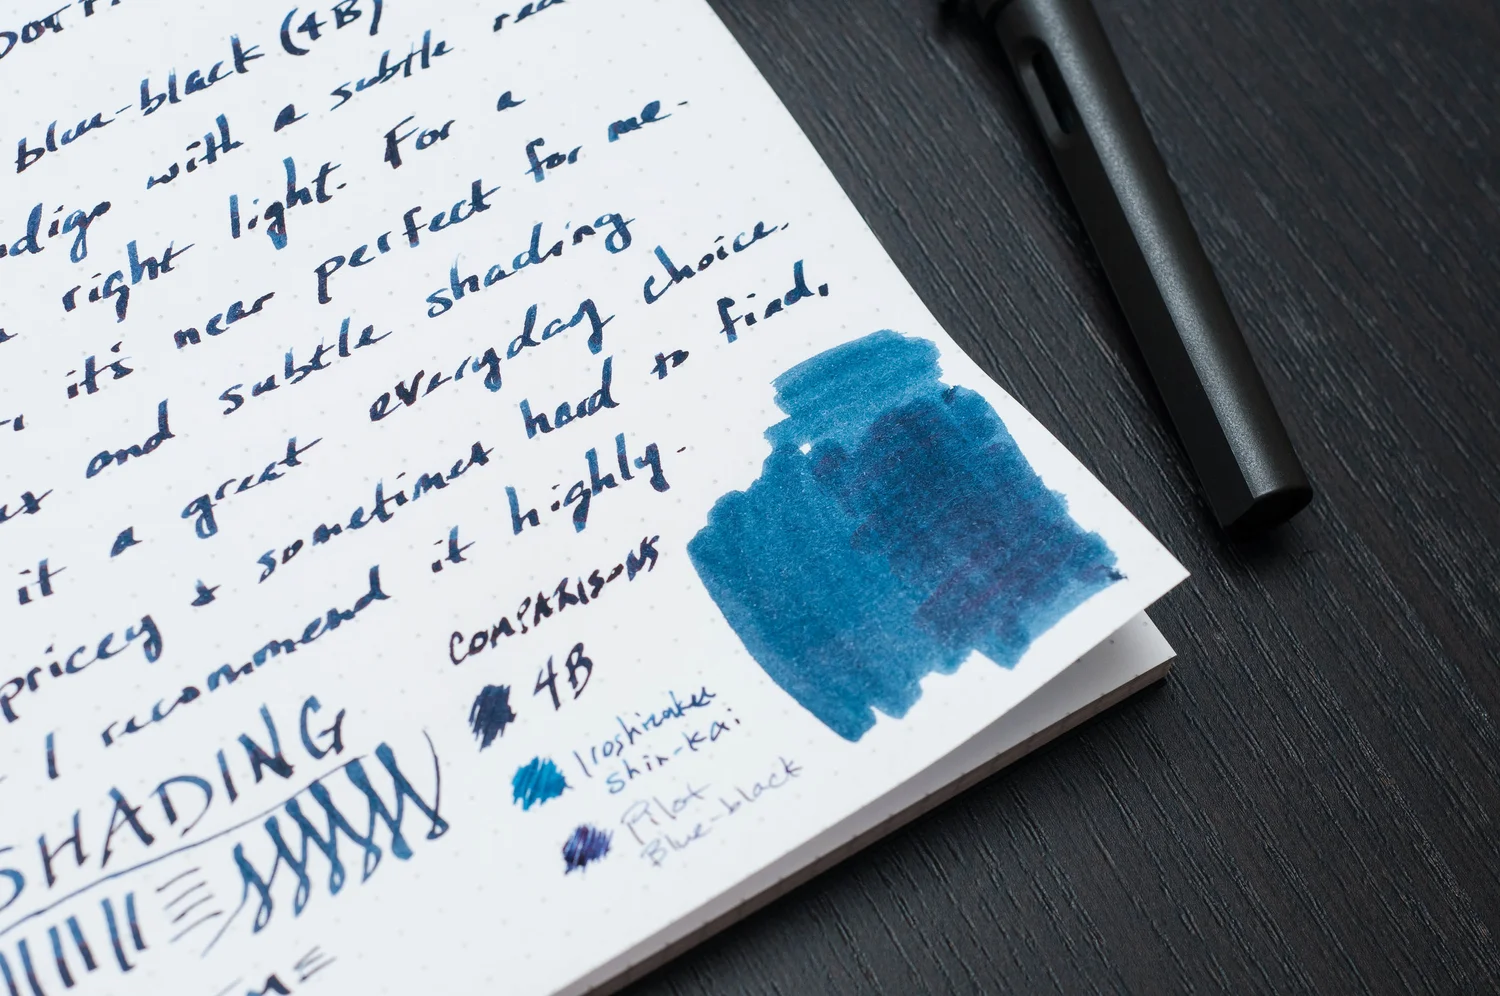 blue-black (4B)
indigo with a subtle red
right light. For a
it's near perfect for me.
and subtle shading
it a great everyday choice.
pricey & sometimes hard to find,
I recommend it highly.
SHADING
COMPARISONS
4B
Iroshizuku
Shin-Kai
Pilot
Blue-black